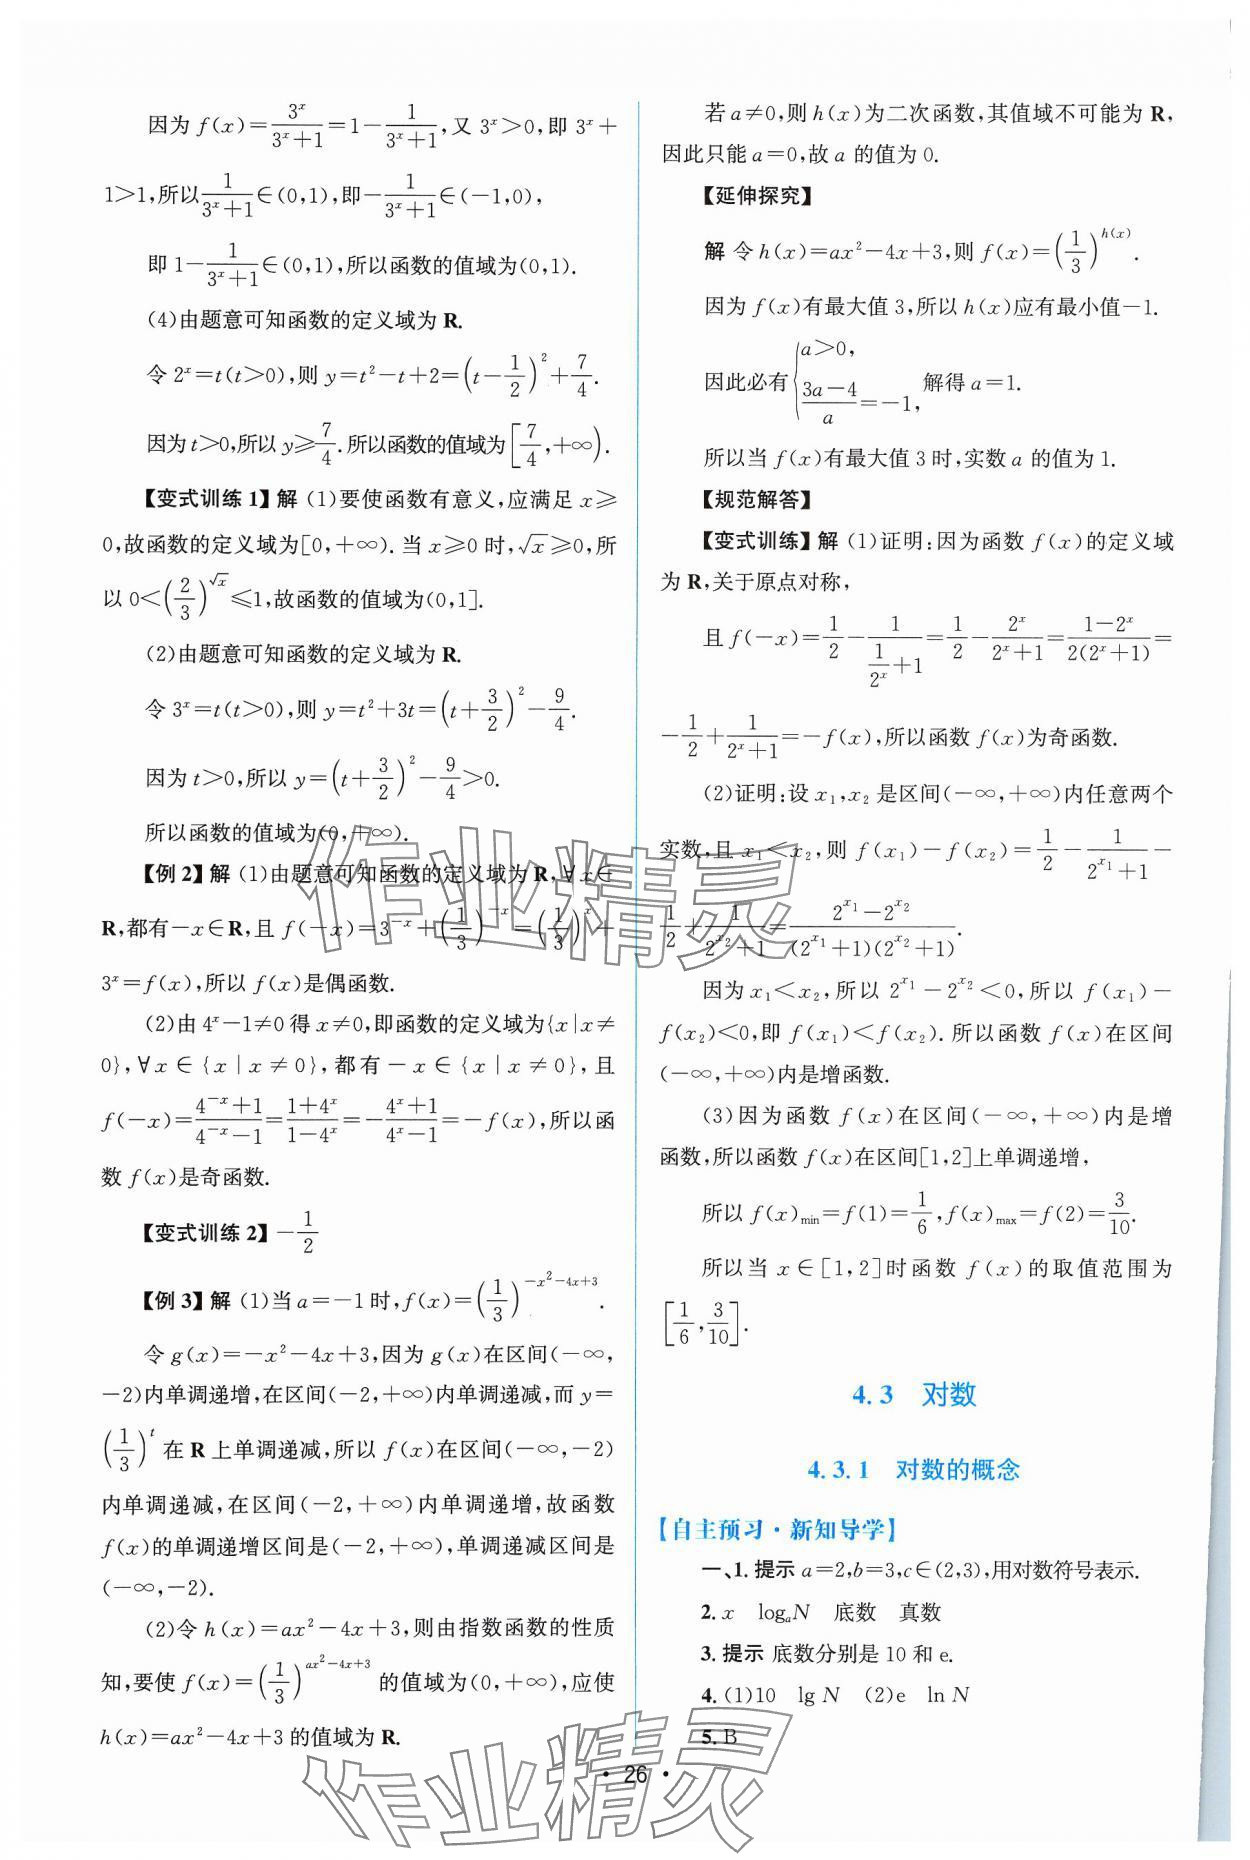 因为 f(x)=3ˣ/(3ˣ+1)=1-1/(3ˣ+1),又 3ˣ>0,即 3ˣ+
1>1,所以1/(3ˣ+1)∈(0,1),即-1/(3ˣ+1)∈(-1,0),
即 1-1/(3ˣ+1)∈(0,1),所以函数的值域为(0,1).
(4)由题意可知函数的定义域为 R.
令 2ˣ=t(t>0),则 y=t²-t+2=(t-1/2)²+7/4.
因为 t>0,所以 y≥7/4.所以函数的值域为[7/4,+∞).
【变式训练 1】解 (1)要使函数有意义,应满足 x≥
0,故函数的定义域为[0,+∞).当 x≥0 时,√x≥0,所
以 0<(2/3)^√x≤1,故函数的值域为(0,1].
(2)由题意可知函数的定义域为 R.
令 3ˣ=t(t>0),则 y=t²+3t=(t+3/2)²-9/4.
因为 t>0,所以 y=(t+3/2)²-9/4>0.
所以函数的值域为(0,+∞).
【例 2】解 (1)由题意可知函数的定义域为 R,∀x∈
R,都有-x∈R,且 f(-x)=3⁻ˣ+(1/3)⁻ˣ=(1/3)ˣ+
3ˣ=f(x),所以 f(x)是偶函数.
(2)由 4ˣ-1≠0 得 x≠0,即函数的定义域为{x|x≠
0},∀x∈{x|x≠0},都有-x∈{x|x≠0},且
f(-x)=(4⁻ˣ+1)/(4⁻ˣ-1)=(1+4ˣ)/(1-4ˣ)=-(4ˣ+1)/(4ˣ-1)=-f(x),所以函
数 f(x)是奇函数.
【变式训练 2】-1/2
【例 3】解 (1)当 a=-1 时,f(x)=(1/3)^(-x²-4x+3).
令 g(x)=-x²-4x+3,因为 g(x)在区间(-∞,
-2)内单调递增,在区间(-2,+∞)内单调递减,而 y=
(1/3)^t 在 R 上单调递减,所以 f(x)在区间(-∞,-2)
内单调递减,在区间(-2,+∞)内单调递增,故函数
f(x)的单调递增区间是(-2,+∞),单调递减区间是
(-∞,-2).
(2)令 h(x)=ax²-4x+3,则由指数函数的性质
知,要使 f(x)=(1/3)^(ax²-4x+3) 的值域为(0,+∞),应使
h(x)=ax²-4x+3 的值域为 R.
若 a≠0,则 h(x)为二次函数,其值域不可能为 R,
因此只能 a=0,故 a 的值为 0.
【延伸探究】
解 令 h(x)=ax²-4x+3,则 f(x)=(1/3)^h(x).
因为 f(x)有最大值 3,所以 h(x)应有最小值-1.
因此必有{a>0, (3a-4)/a=-1, 解得 a=1.
所以当 f(x)有最大值 3 时,实数 a 的值为 1.
【规范解答】
【变式训练】解 (1)证明:因为函数 f(x)的定义域
为 R,关于原点对称,
且 f(-x)=1/2-1/(1/2ˣ+1)=1/2-2ˣ/(2ˣ+1)=(1-2ˣ)/(2(2ˣ+1))=
-1/2+1/(2ˣ+1)=-f(x),所以函数 f(x)为奇函数.
(2)证明:设 x₁,x₂ 是区间(-∞,+∞)内任意两个
实数,且 x₁<x₂,则 f(x₁)-f(x₂)=1/2-1/(2^x₁+1)-
1/2+1/(2^x₂+1)=(2^x₁-2^x₂)/((2^x₁+1)(2^x₂+1)).
因为 x₁<x₂,所以 2^x₁-2^x₂<0,所以 f(x₁)-
f(x₂)<0,即 f(x₁)<f(x₂).所以函数 f(x)在区间
(-∞,+∞)内是增函数.
(3)因为函数 f(x)在区间(-∞,+∞)内是增
函数,所以函数 f(x)在区间[1,2]上单调递增,
所以 f(x)min=f(1)=1/6,f(x)max=f(2)=3/10.
所以当 x∈[1,2]时函数 f(x)的取值范围为
[1/6,3/10].
4.3 对数
4.3.1 对数的概念
【自主预习·新知导学】
一、1.提示 a=2,b=3,c∈(2,3),用对数符号表示.
2. x logₐN 底数 真数
3. 提示 底数分别是 10 和 e.
4. (1)10 lg N (2)e ln N
5. B
·26·
作业精灵
作业精灵